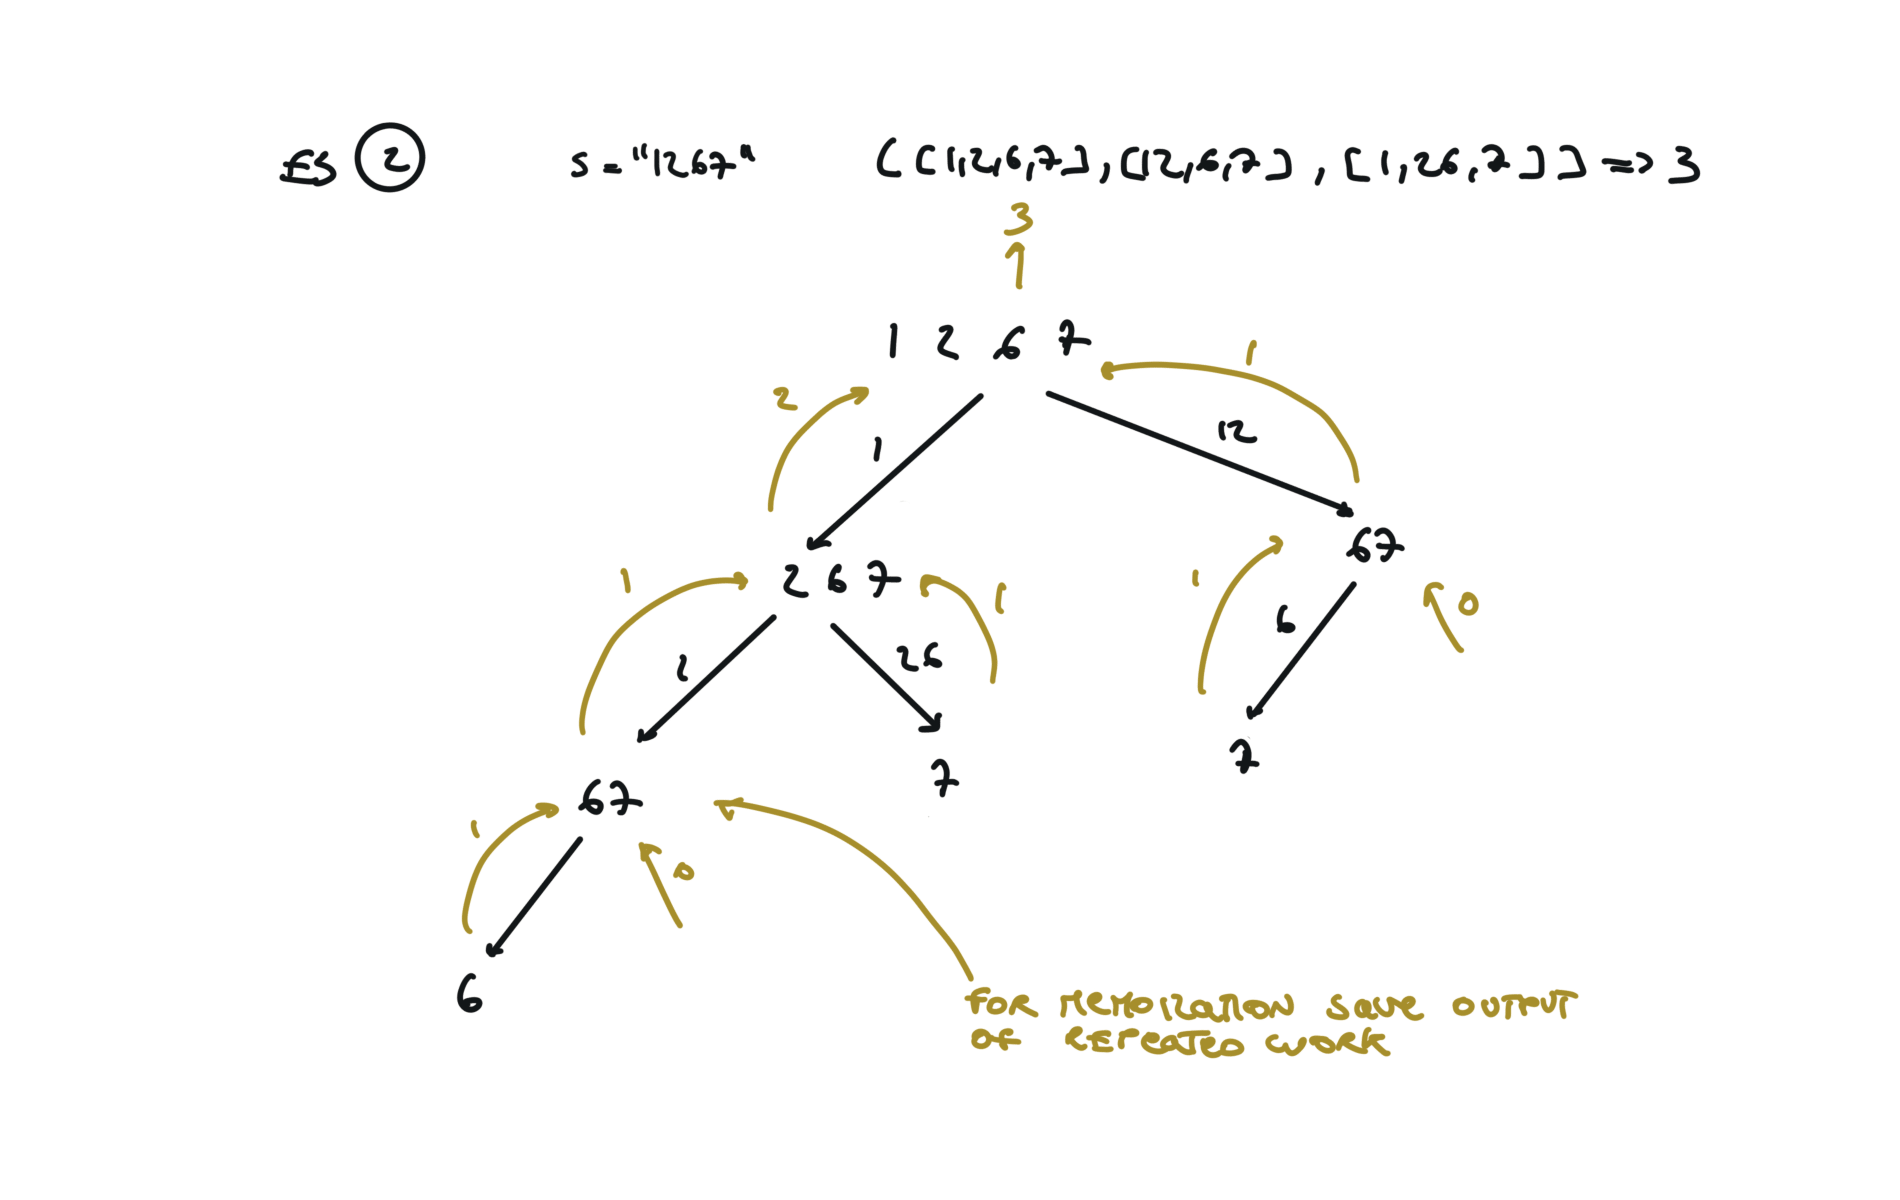 ES 2 s = "1267" [[1,2,6,7],[12,6,7],[1,26,7]] => 3
3
1 2 6 7
1
2
12
1
67
2 6 7
1
1
1
0
6
26
1
7
7
67
1
0
6
FOR MEMOIZATION SAVE OUTPUT
OF REPEATED WORK